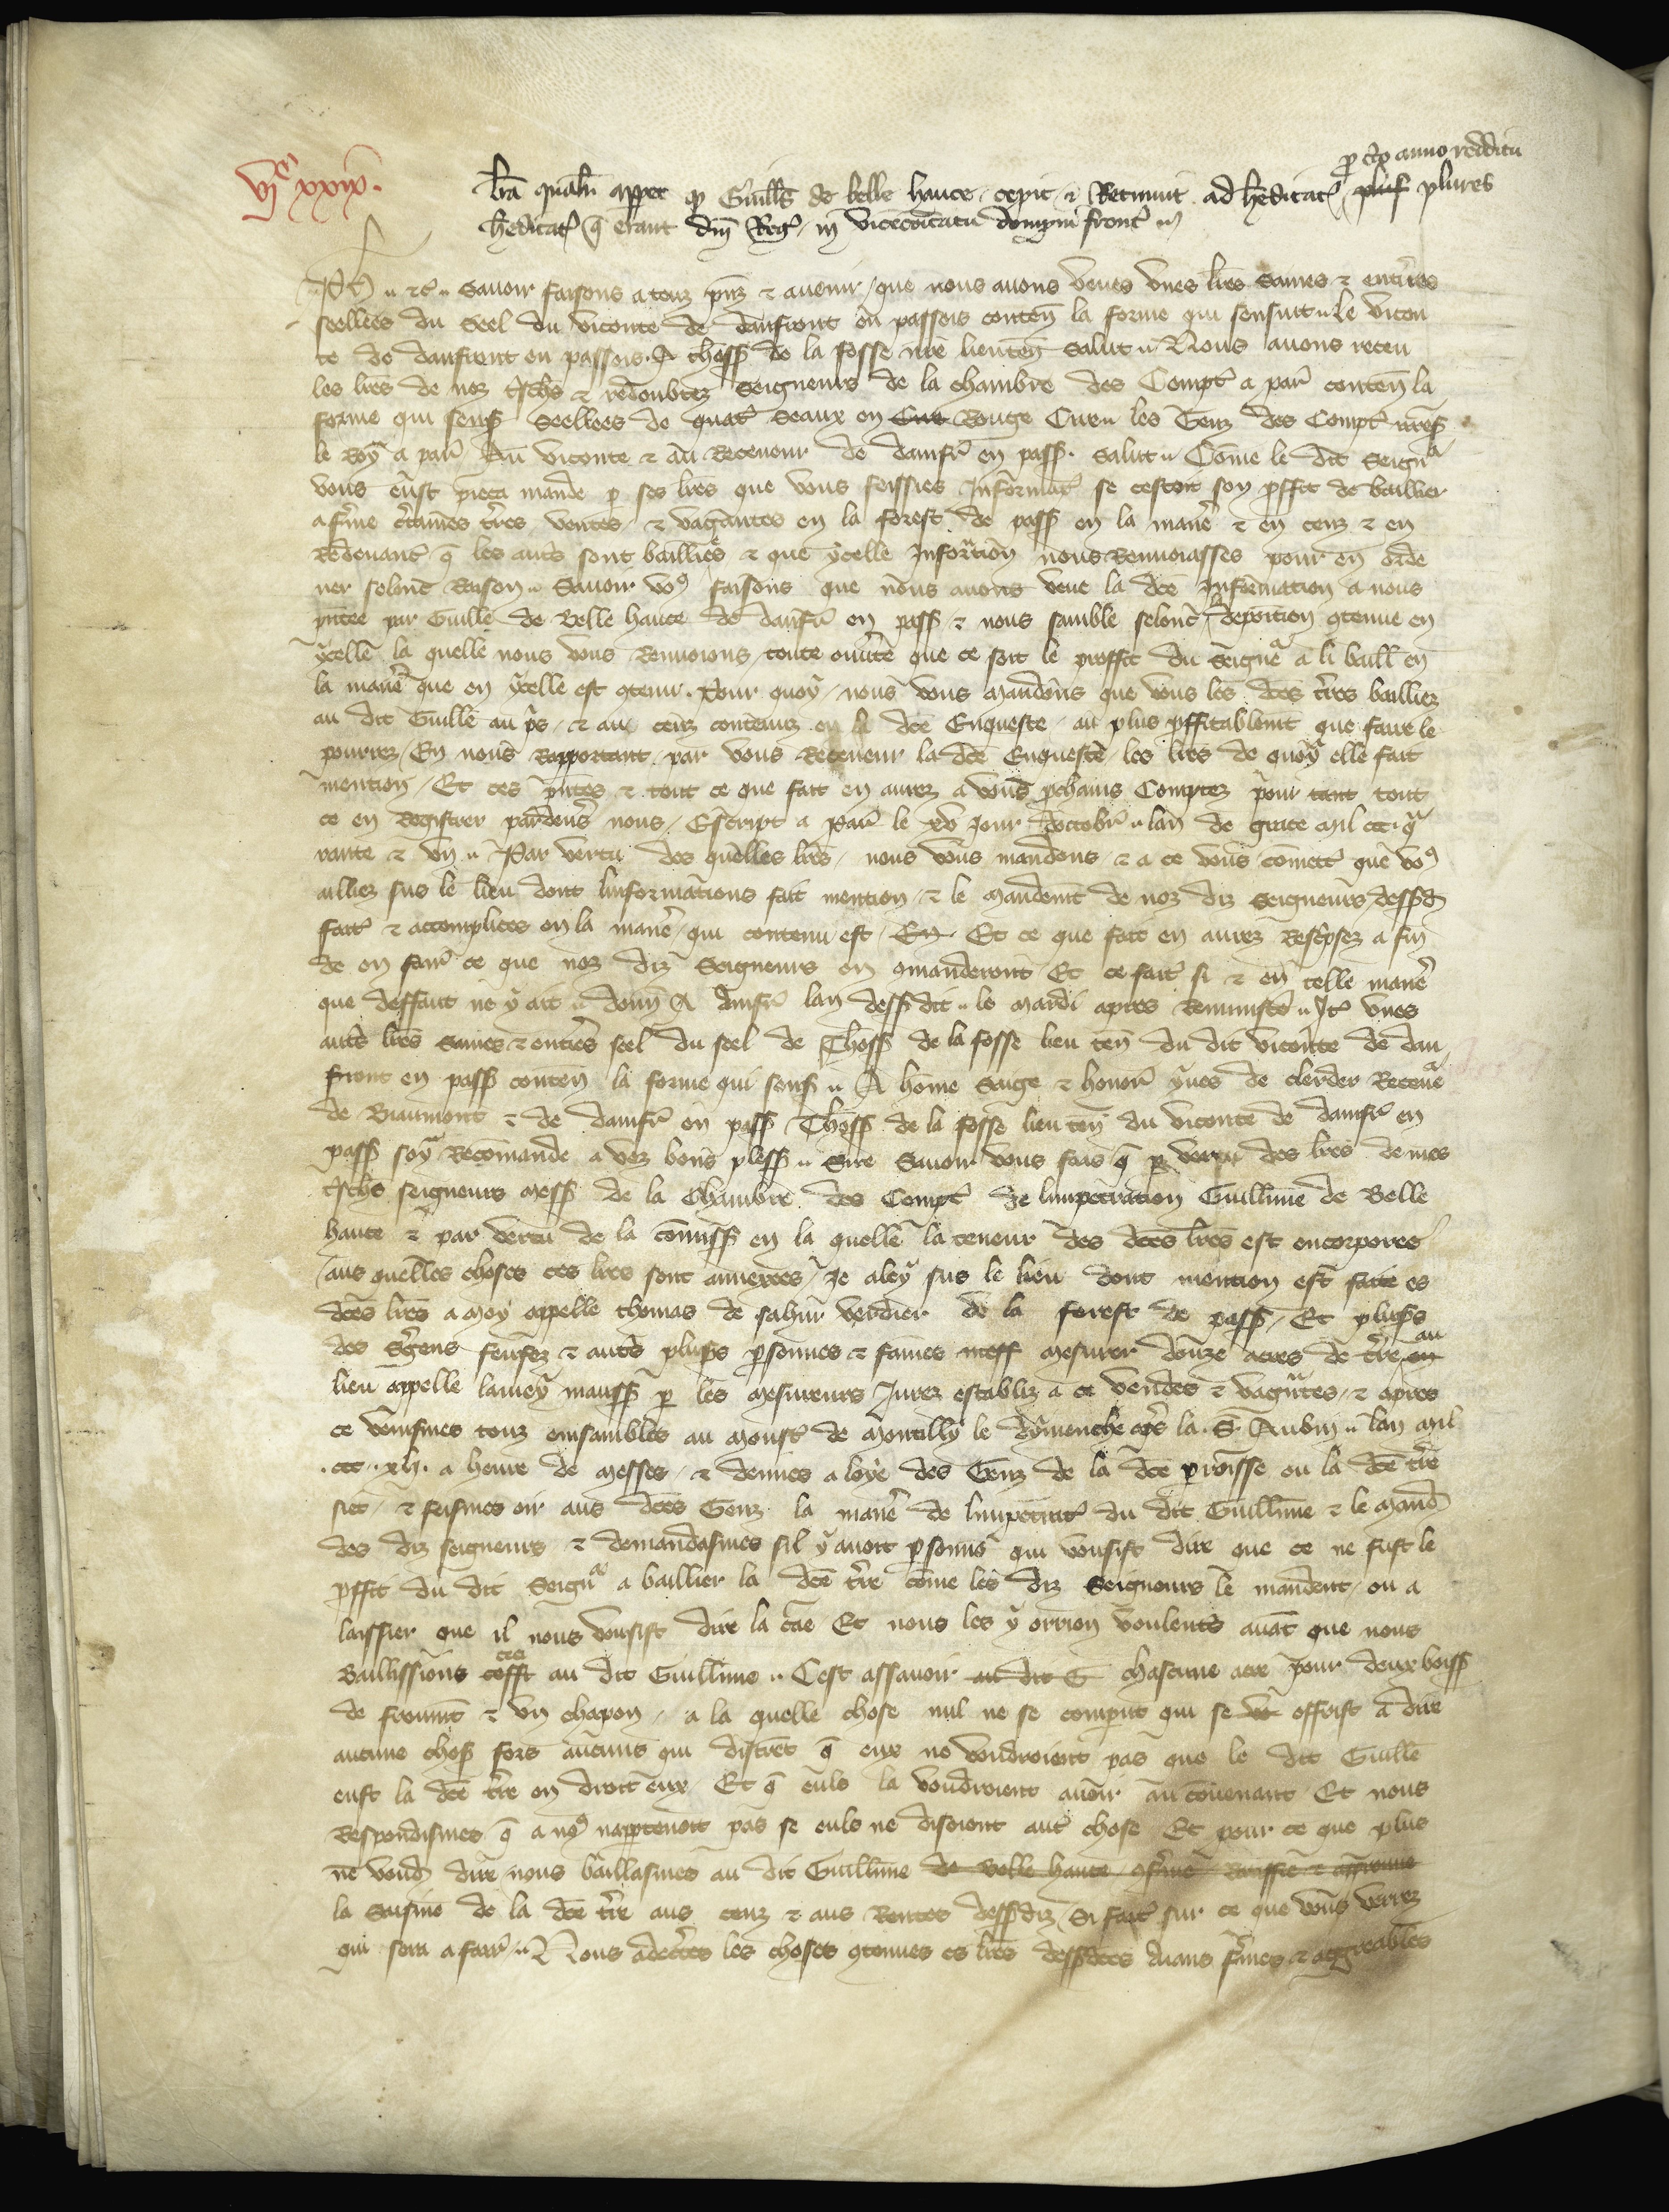 p̲ c̃to anno redditu
vjᶜ xxix.
lrã qualit̃ apꝑet ꝙ Guill̃s de belle hauce cepit ⁊ Retinuit ad heditat̃ pluſ plures
heditat̃ q̃ erant dñi Reg̃ in vicecomitatu dompni front̃
Ph̃ ⁊c̃ Sauoir faisons a touz p̃nz ⁊ auenir que nous auons veues vnes lr̃es Saines ⁊ entieres
seellees du Seel du viconte de danfront en passois conten̄ la forme qui sensuit Le vicon
te de danfront en passois A thoꝝ̃ de la fosse nr̃e lieuten̄ Salut Nous auons receu
les lr̃es de noz chr̃s ⁊ redoubtez Seigneurs de la chambre des Compt̃ a par̃ conten̄ la
forme qui senſ̃ Seellees de quat̃ Seaux en Cue Rouge Cire les Genz des Compt̃ nr̃eſ̃
le Roy a par̃ Au viconte ⁊ au Receueur de damfr̃ en paſſ̃. Salut Cōme le dit Seignr̃
vous eust pieca mande p̲ ses lr̃es que vous feissies Informat̃ se cestoit son p̲ffit de baillier
a fr̃me c̃taines tr̃res ventes ⁊ vagantes en la forest de paſſ̃ en la manie᷑ ⁊ en cenz ⁊ en
redeuant̃ q̃ les autr̃ sont bailliees ⁊ que ycelle Information nous Renuoiasses pour en orde
ner selonc Raison Sauoir vo⁹ faisons que nous auons veue la dc̃e Information a nous
p̃ntee par Guill̃e de Belle hauce de danfr̃ en paſſ̃ ⁊ nous samble selonc la deposition ꝯtenue en
ycelle la quelle nous vous Renuoions toute ouu̓te que ce soit le proffit du Seignr̃ a li baill̃ en
la manie᷑ que en ycelle est ꝯtenu. Pour quoy nous vous mandons que vous les dc̃es tr̃res bailliez
au dit Guill̃e au p̃s ⁊ au cenz contenuz en la dc̃e Enqueste au plus p̲ffitablem̃t que faire le
pourrez En nous Rapportant par vous Receueur la dc̃e Enqueste les lr̃es de quoy elle fait
mention Et ces p̃ntes ⁊ tout ce que fait en aurez a vous p̲chains Comptez pour tant tout
ce en Registrer pardeu̓s nous Escript a Par̃ le xvᵉ jour doctobr̃ lan de grace mil ccc q̃
rante ⁊ vn Par vertu des quelles lr̃es nous vous mandons ⁊ a ce vous cometõs que vo⁹
ailliez sus le lieu dont linformations fait mention ⁊ le mandem̃t de noz diz Seigneurs deſſ̃d̃
fait̃ ⁊ accomplices en la manie᷑ qui contenu est En Et ce que fait en aurez Resc̃psez a fin
de en fair̃ ce que noz diz Seigneurs en ꝯmanderont Et ce fait̃ si ⁊ en telle manie᷑
que deffaut ne y ait donn̄ A danfr̃ lan deſſ̃dit le mardi apres Reminisc̃ Jt̃ vnes
autr̃ lr̃es Saines ⁊ entier̃s seel̃ du seel de Thoꝝ̃ de la fosse lieu ten̄ du dit viconte de dan
front en paſſ̃ conten̄ la forme qui senſ̃ A hōme Sage ⁊ honor̃ yues de clerder Receue᷑
de Biaumont ⁊ de damfr̃ en paſſ̃ Thoꝝ̃ de la fosse lieu ten̄ du viconte de damfr̃ en
paſſ̃ soy Recōmande a voz bons pleſſ̃ Sire Sauoir vous fais q̃ p̲ vertu des lr̃es de mes
chr̃s seigneurs meſſ̃ de la Chambre des Compt̃ de limpetration Guill̃me de Belle
hauce ⁊ par vertu de la cōmiſſ̃ en la quelle la teneur des dc̃es lr̃es est encorporee
aus quelles choses ces lr̃es sont annexees Je aley sus le lieu dont mention est faite es
dc̃es lr̃es a moy appelle thomas de sahur̃ verdier de la forest de paſſ̃ Et pluꝯ̃s
des S̃gens feuſſez ⁊ autr̃ pluꝯ̃s p̲sonnes ⁊ faimes meſſ mesurer douze acres de tr̃re en au
lieu appelle lamey mauſſ̃ p̲ les mesureurs Jurez establiz a ce vendes ⁊ vagantes ⁊ apres
ce venismes touz ensambles au moust̃ de montilly le dymenche ap̃s la. S. Aubin lan mil
.ccc. xli. a heure de messes ⁊ denmes a loye des Genz de la dc̃e p̲roisse ou la dc̃e tr̃re
siet ⁊ feismes oir aus dc̃es Genz la manie᷑ de limpetrat̃ du dit Guill̃me ⁊ le mand̃
des diz seigneurs ⁊ demandasmes sil y auoit p̲sonne qui vousist dire que ce ne fust le
p̲ffit du dit Seignr̃ a baillier la dc̃e tr̃re cōme les diz Seigneurs le mandent ou a
laissier que il nous vousist dire la cãe Et nous les y orrion voulentr̃ auãt que nous
Baillissions ces cefft au dit Guill̃me Cest assauoir au dit G chascune acre pour deux boiſſ̃
de froumt̃ ⁊ vn chapon a la quelle chose nul ne se comparut qui se vo offrist a dire
aucune choſ̃ fors aucuns qui distrẽt q̃ eux ne voudroient pas que le dit Guill̃e
eust la dc̃e tr̃re en droit eux Et q̃ euls la voudroient auoir au couenant Et nous
Respondismes q̃ a no⁹ nap̲tenoit pas se euls ne disoient autr̃ chose Et pour ce que plus
ne vould̃ dire nous baillasmes au dit Guill̃me de belle hauce
la Saisine de la dc̃e tr̃re aus cenz ⁊ aus Rentes deſſ̃diz Si fait̃ sur ce que vous verrez
qui sera a fair̃ Nous adec̃tes les choses ꝯtenues es lr̃es deſſ̃dc̃es aians fr̃mes ⁊ aggreables